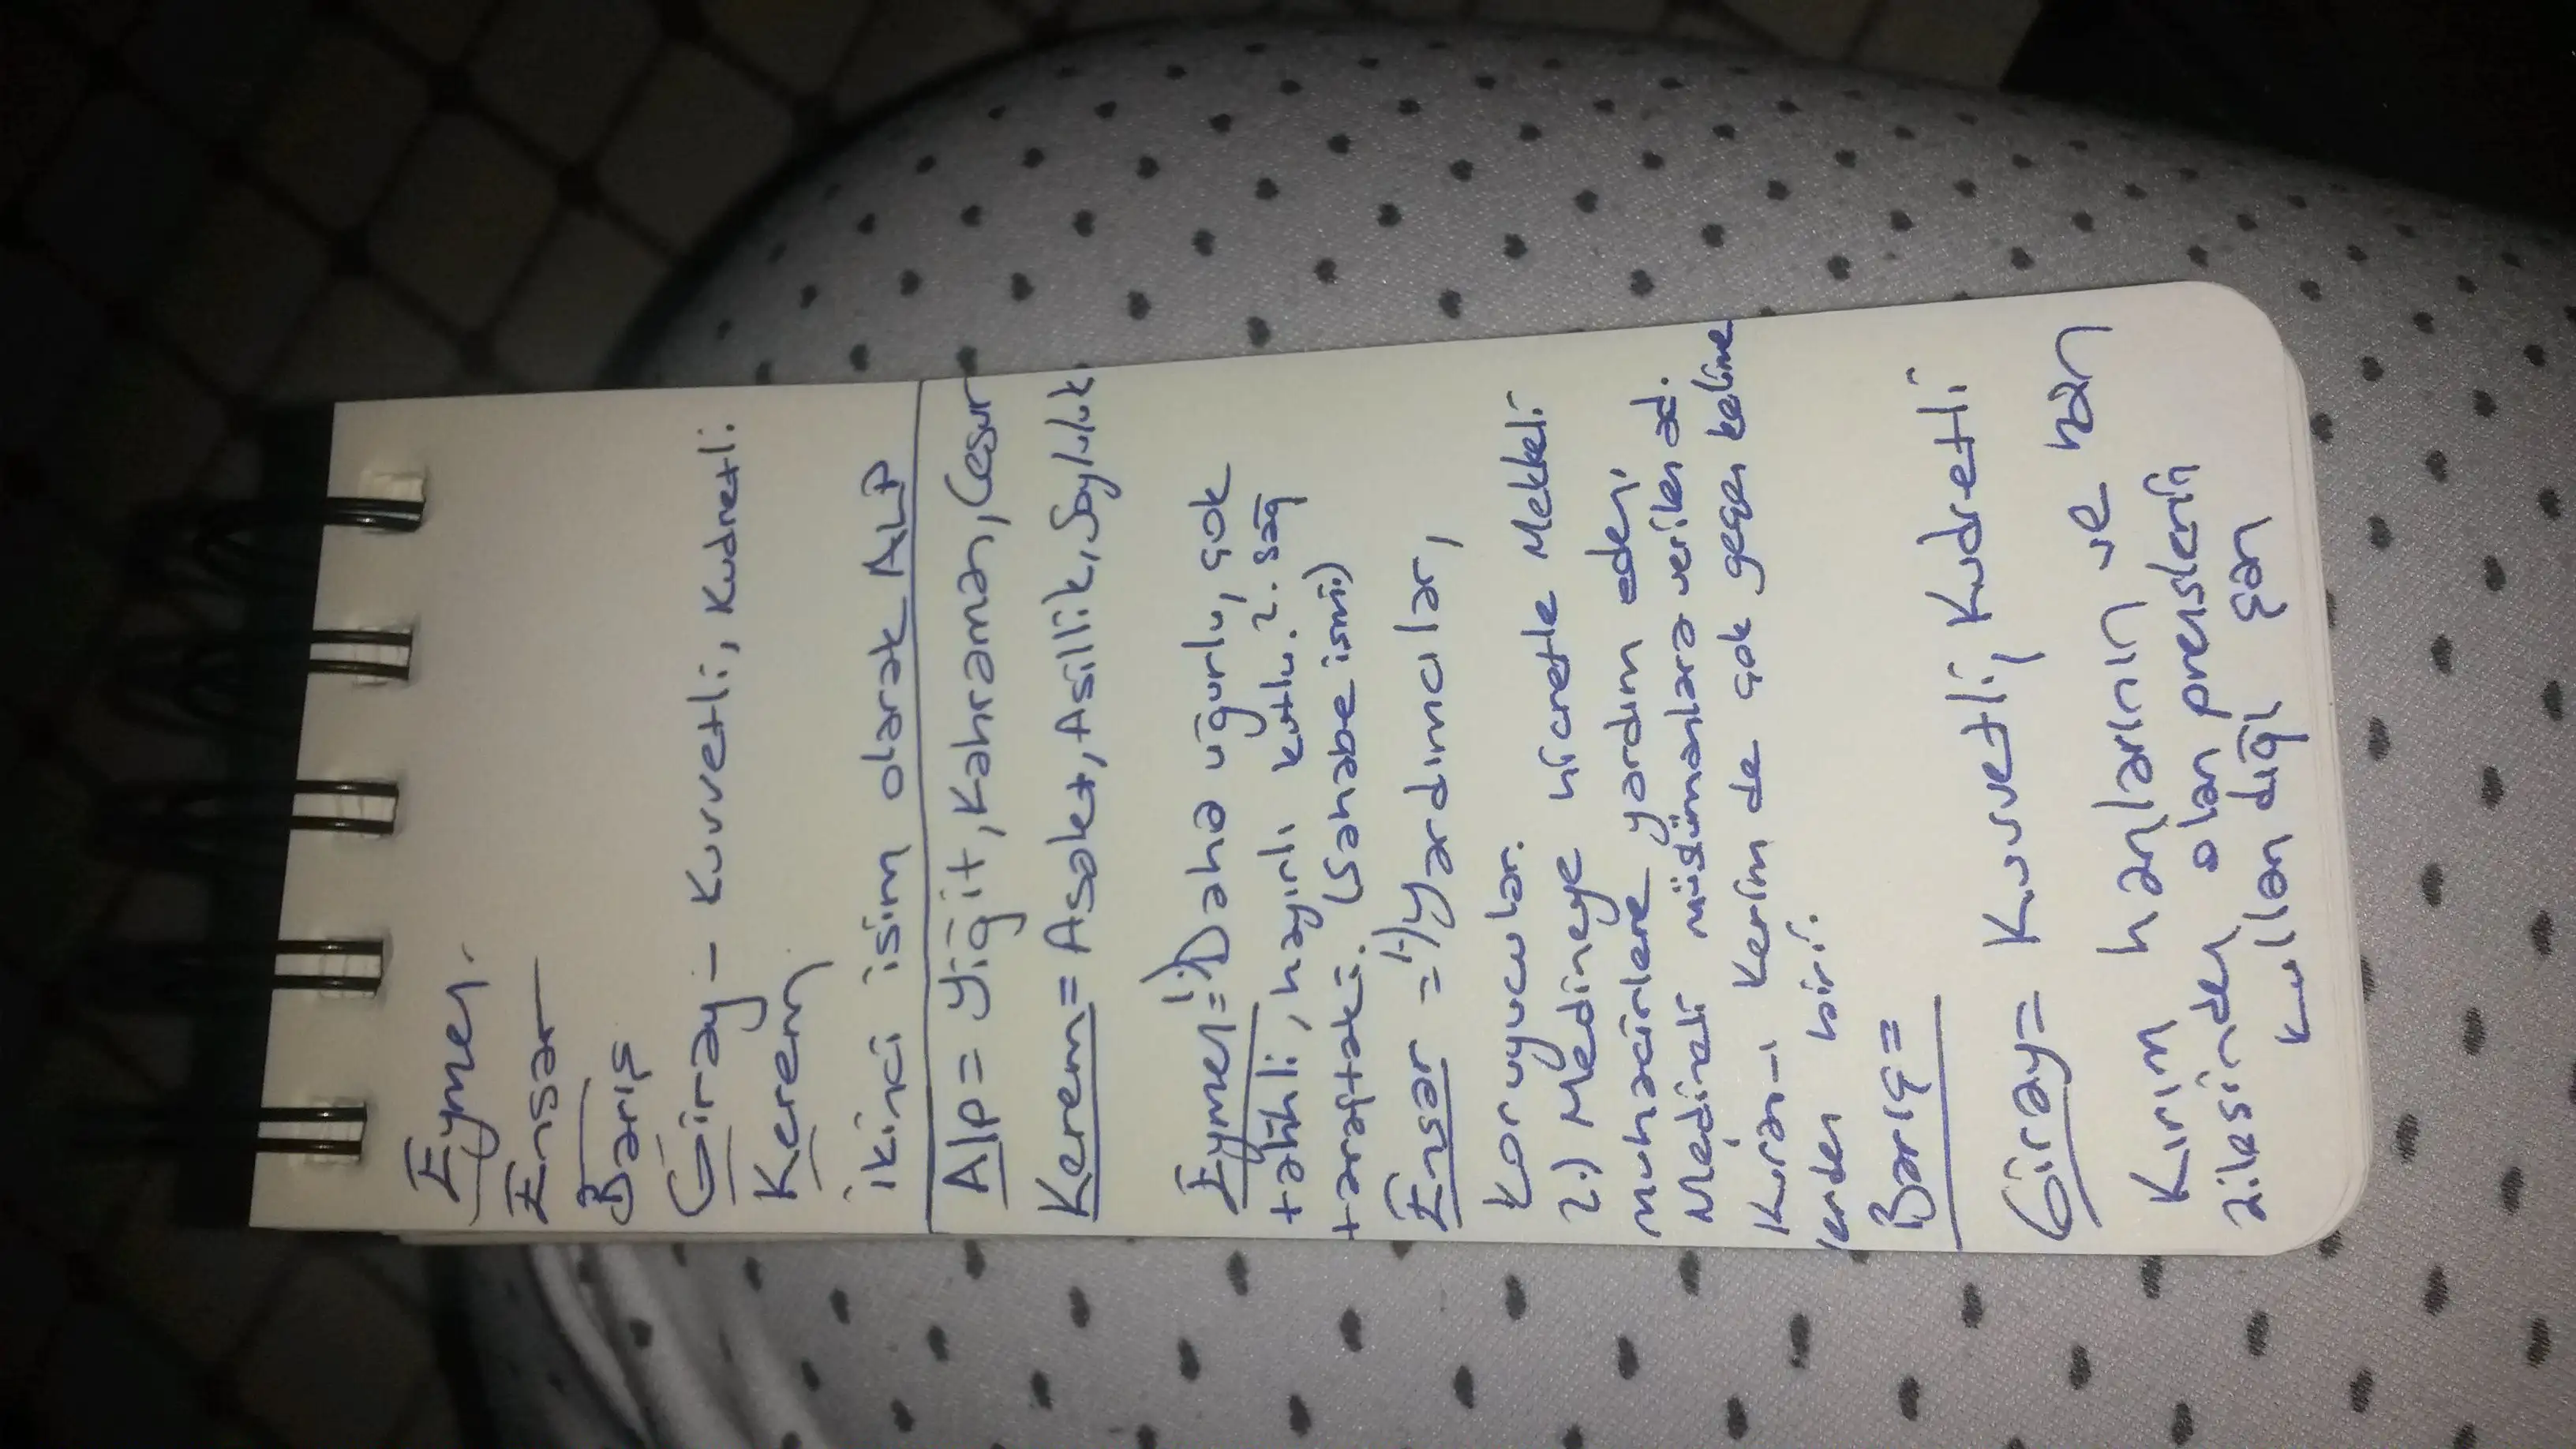 Eymen.
Ensar
Barış
Giray - Kuvvetli, Kudretli.
Kerem
ikinci isim olarak ALP
Alp = Yiğit, Kahraman, Cesur
Kerem = Asalet, Asillik, Soyluluk
Eymen = 1.) Daha uğurlu, çok
talihli, hayırlı kutlu. 2. sağ
taraftaki. (Sahabe ismi)
Ensar = 1.) Yardımcılar,
Koruyucular.
2.) Medineye hicretle Mekkeli
muhacirlere yardım eden,
Medineli müslümanlara verilen ad.
Kuran-ı Kerim de çok geçen kelime
lerden biri.
Barış =
Giray = Kuvvetli, Kudretli
Kırım hanlarının ve han
ailesinden olan prenslerin
kullandığı şan